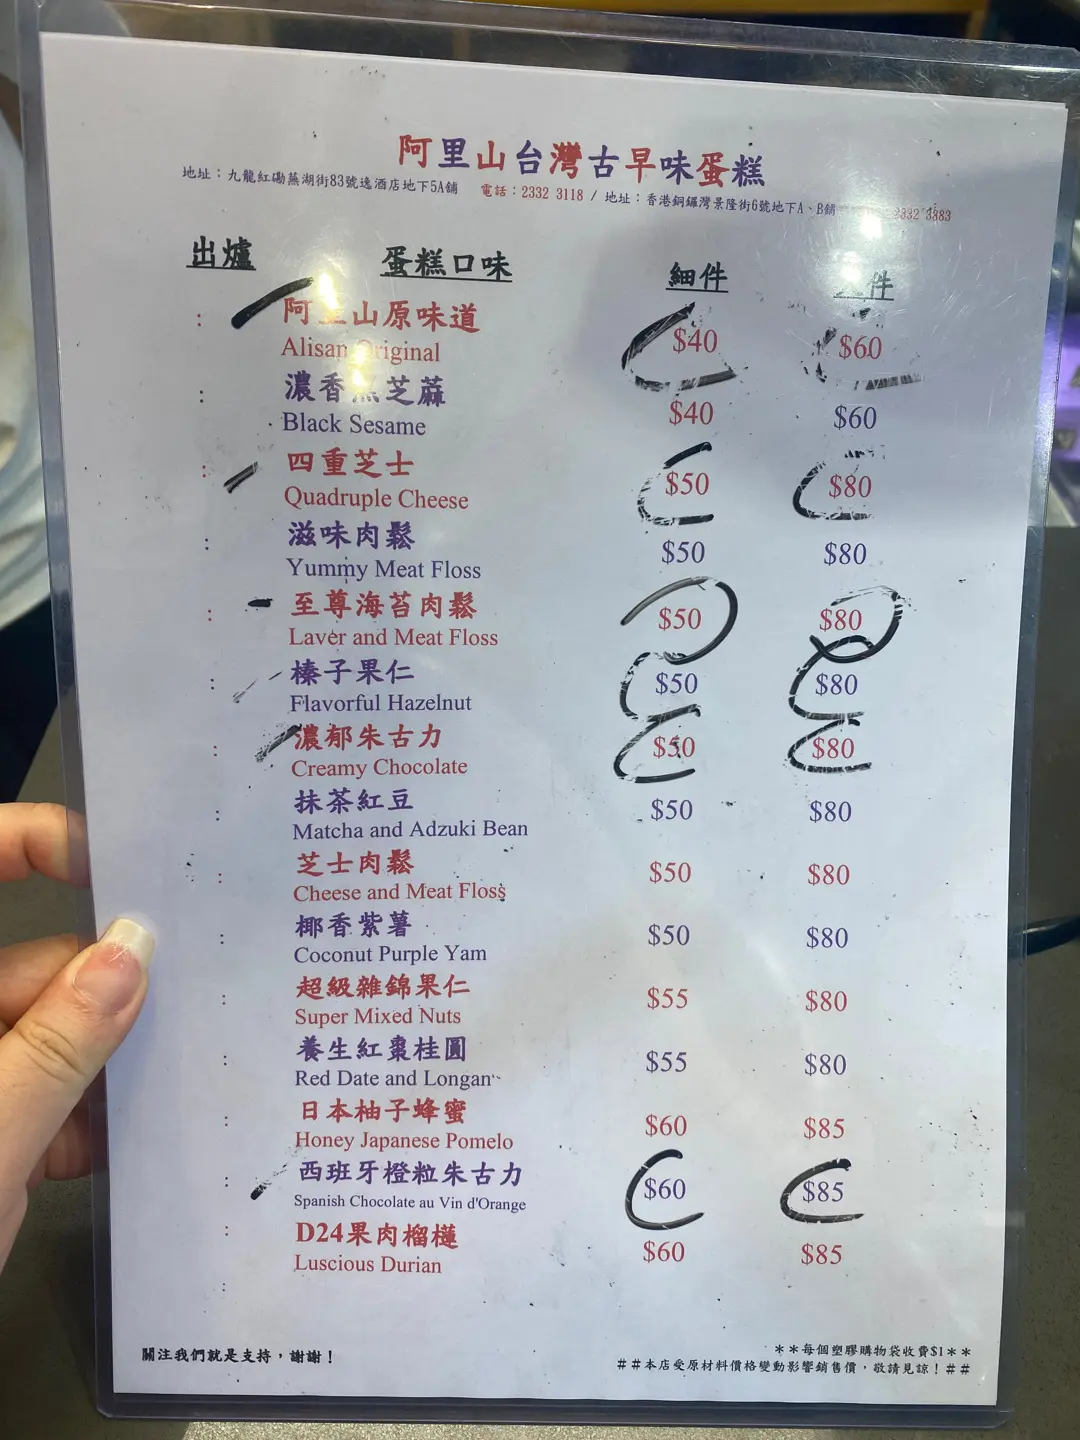 阿里山台灣古早味蛋糕
地址：九龍紅磡蕪湖街83號逸酒店地下5A舖 電話：2332 3118 / 地址：香港銅鑼灣景隆街6號地下A、B舖 2332 3383
出爐 蛋糕口味 細件 件
: 阿里山原味道
Alisan Original $40 $60
: 濃香黑芝蔴
Black Sesame $40 $60
: 四重芝士
Quadruple Cheese $50 $80
: 滋味肉鬆
Yummy Meat Floss $50 $80
: 至尊海苔肉鬆
Laver and Meat Floss $50 $80
: 榛子果仁
Flavorful Hazelnut $50 $80
: 濃郁朱古力
Creamy Chocolate $50 $80
: 抹茶紅豆
Matcha and Adzuki Bean $50 $80
: 芝士肉鬆
Cheese and Meat Floss $50 $80
: 椰香紫薯
Coconut Purple Yam $50 $80
: 超級雜錦果仁
Super Mixed Nuts $55 $80
: 養生紅棗桂圓
Red Date and Longan $55 $80
: 日本柚子蜂蜜
Honey Japanese Pomelo $60 $85
西班牙橙粒朱古力
Spanish Chocolate au Vin d'Orange $60 $85
: D24果肉榴槤
Luscious Durian $60 $85
:
關注我們就是支持，謝謝！
＊＊每個塑膠購物袋收費$1＊＊
##本店受原材料價格變動影響銷售價，敬請見諒！##